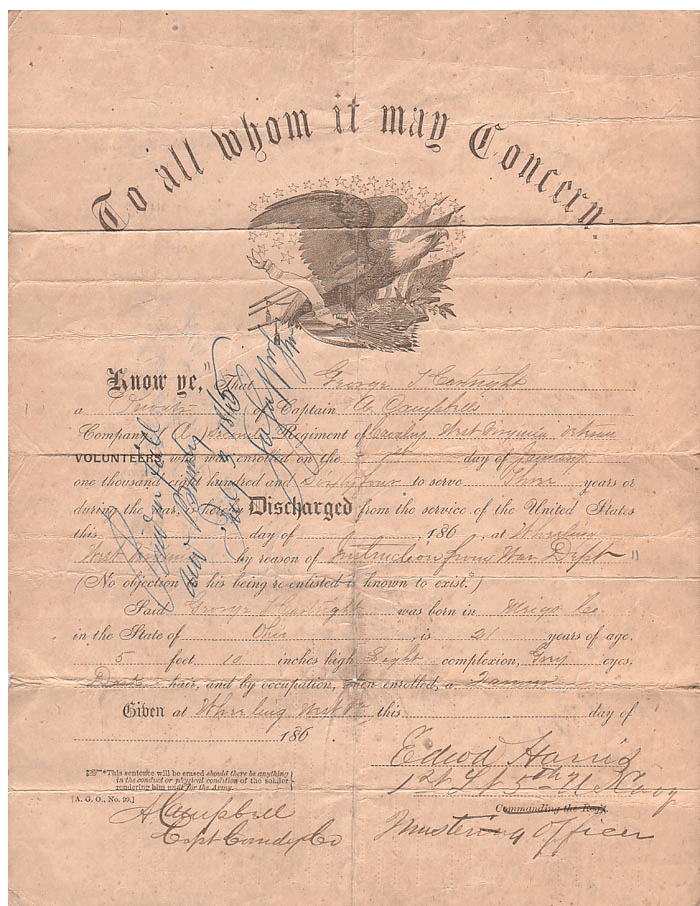 To all whom it may Concern.
Know ye, That George
a Private of Captain A Campbells
Company (A) Second Regiment of Cavalry West Virginia
VOLUNTEERS who was enrolled on the day of January
one thousand eight hundred and Sixty four to serve Three years or
during the war, is hereby Discharged from the service of the United States
this day of , 186 , at Wheeling
West Virginia by reason of Instruction from War Dept
(No objection to his being re-enlisted is known to exist.*)
Said George was born in Meigs Co
in the State of Ohio , is 21 years of age,
5 feet 10 inches high, Light complexion, Grey eyes,
Dark hair, and by occupation, when enrolled, a Farmer
Given at Wheeling West Va this day of
186
*This sentence will be erased should there be anything
in the conduct or physical condition of the soldier
rendering him unfit for the Army.
[A. G. O., No. 99.]
Edwd Harris
1st Lt 5th U S Cavy
Commanding the Regt.
Mustering Officer
A Campbell
Capt Comdg Co
Paid in full